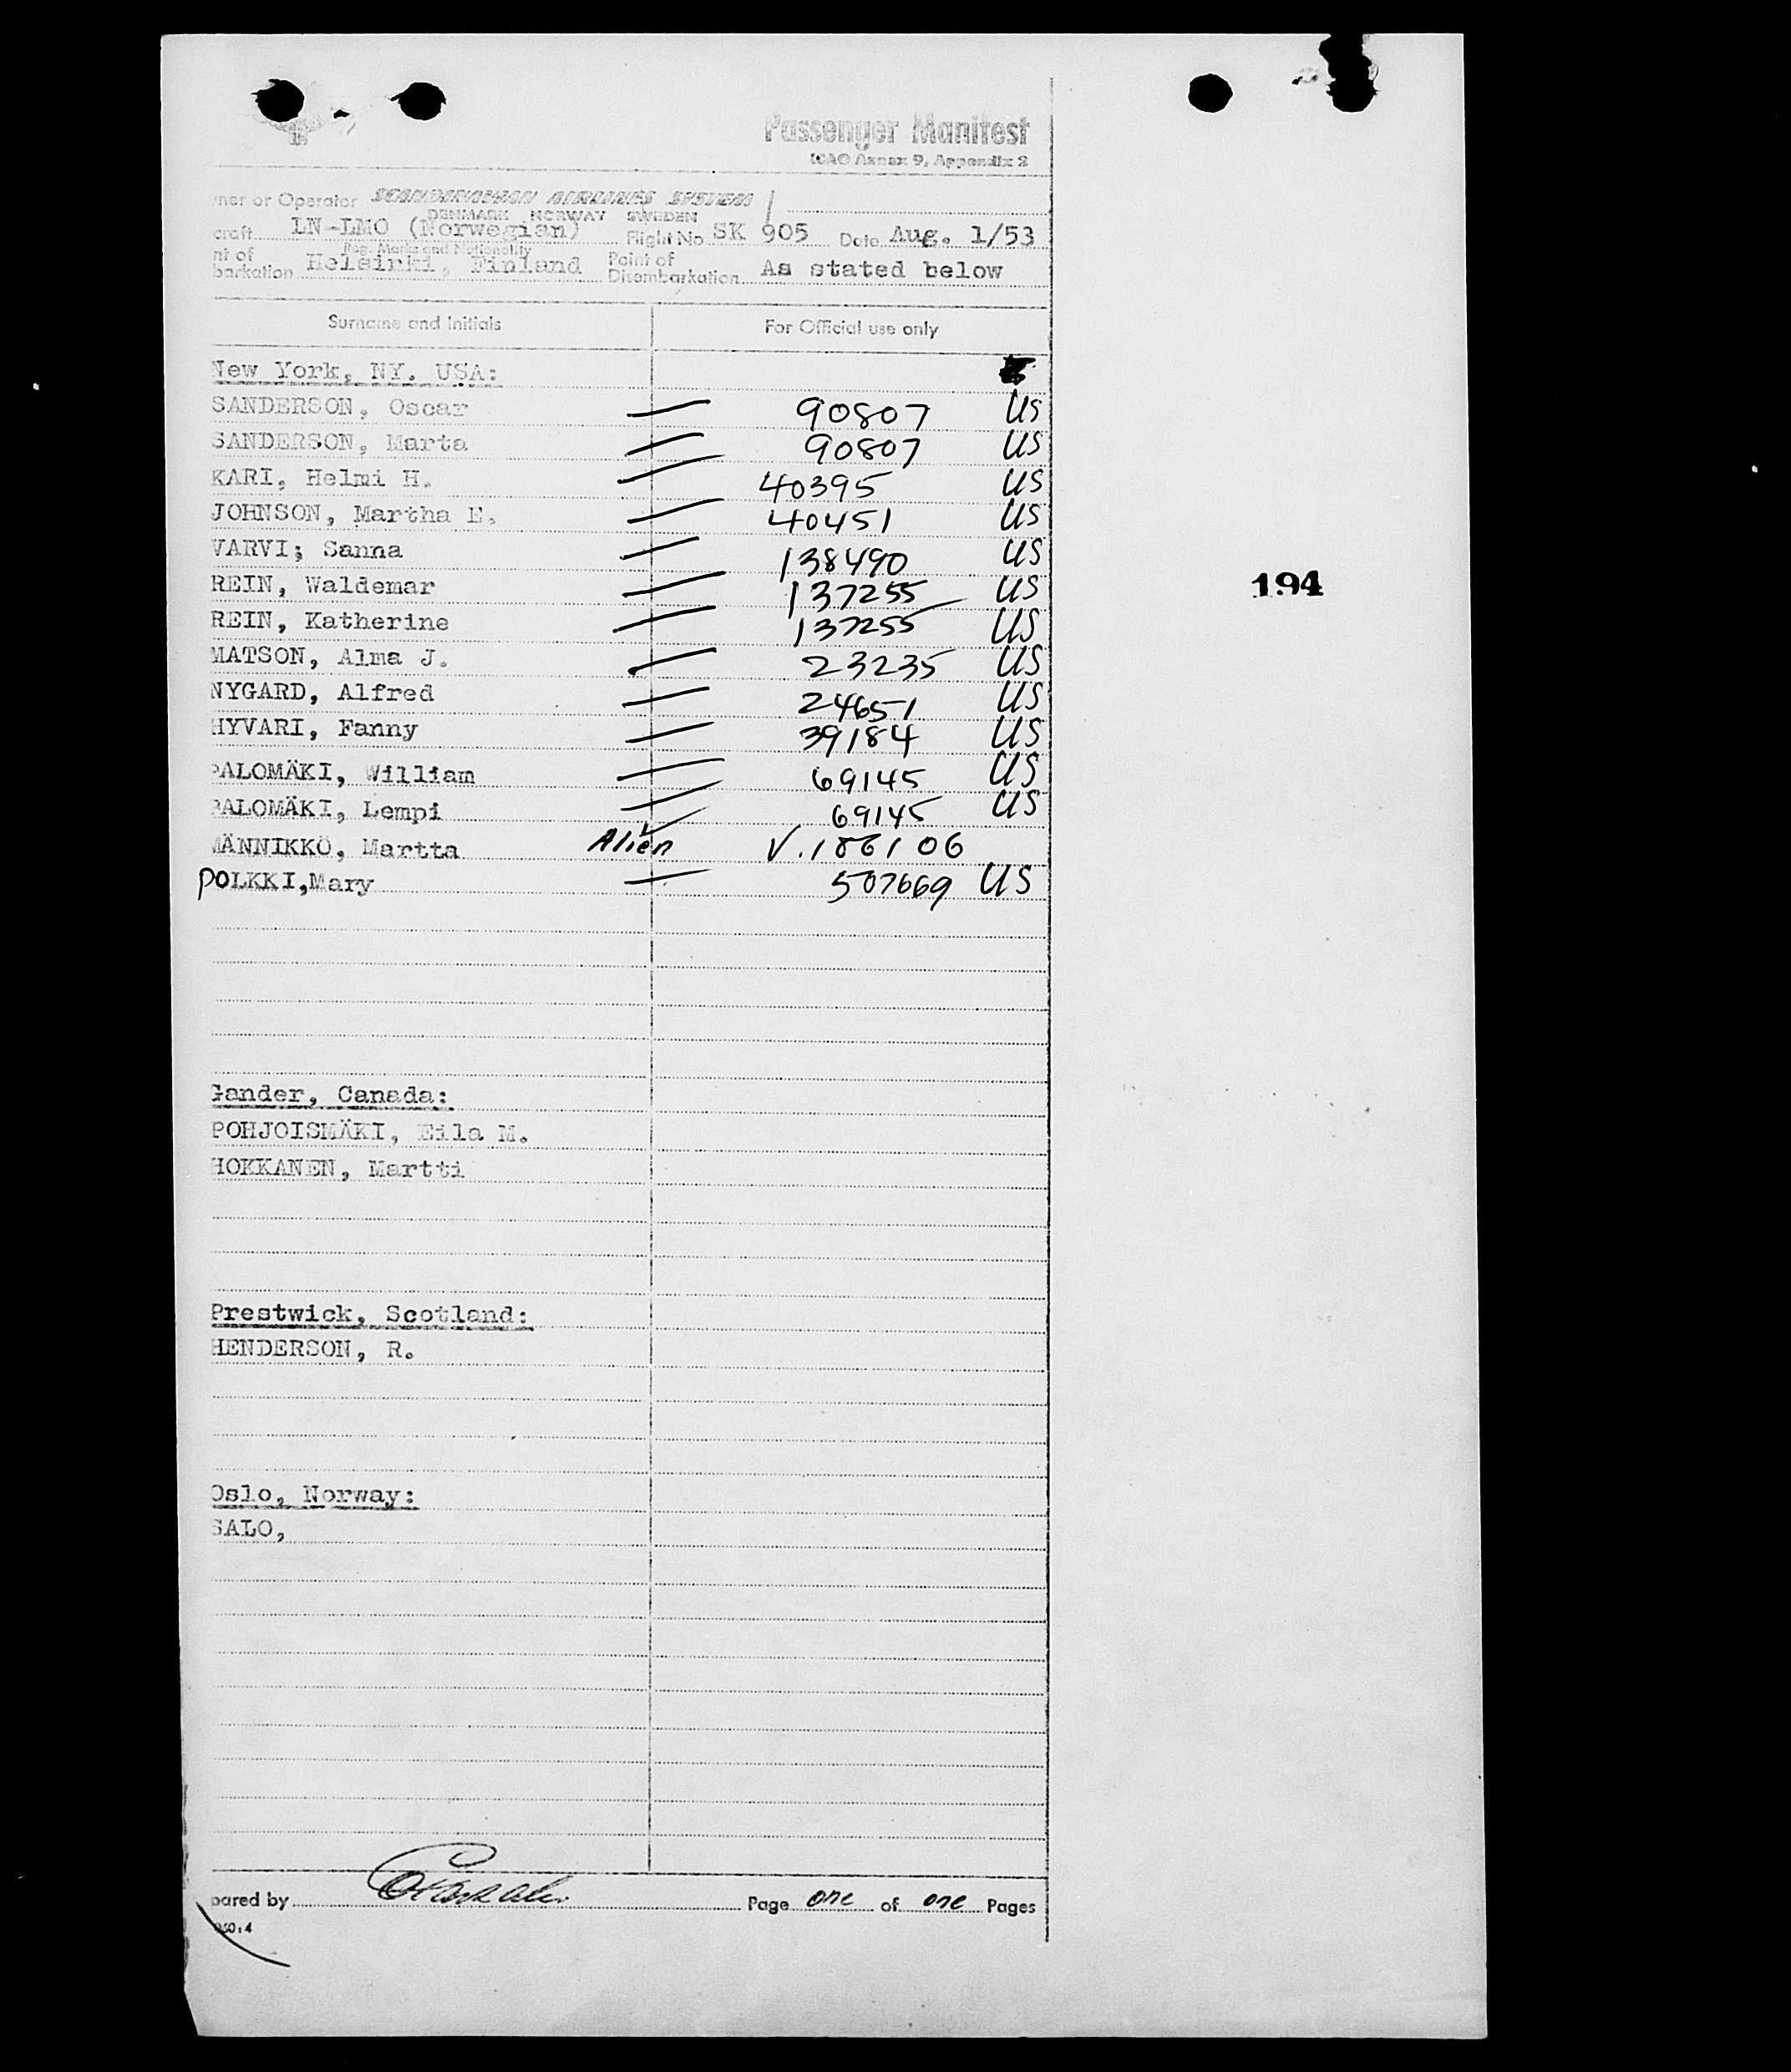 Passenger Manifest
ICAO Annex 9, Appendix 2
ner or Operator SCANDINAVIAN AIRLINES SYSTEM
DENMARK NORWAY SWEDEN
craft LN-LMO (Norwegian) Flight No SK 905 Date Aug. 1/53
Reg. Marks and Nationality
nt of barkation Helsinki, Finland Point of Disembarkation As stated below
Surname and Initials For Official use only
New York, NY. USA:
SANDERSON, Oscar 90807 US
SANDERSON, Marta 90807 US
KARI, Helmi H. 40395 US
JOHNSON, Martha E. 40451 US
VARVI; Sanna 138490 US
REIN, Waldemar 137255 US
REIN, Katherine 137255 US
194
MATSON, Alma J. 23235 US
NYGARD, Alfred 24651 US
HYVARI, Fanny 39184 US
PALOMÄKI, William 69145 US
PALOMÄKI, Lempi 69145 US
MÄNNIKKÖ, Martta Alien V.186106
POLKKI,Mary 507669 US
Gander, Canada:
POHJOISMÄKI, Eila M.
HOKKANEN, Martti
Prestwick, Scotland:
HENDERSON, R.
Oslo, Norway:
SALO,
pared by Page one of one Pages